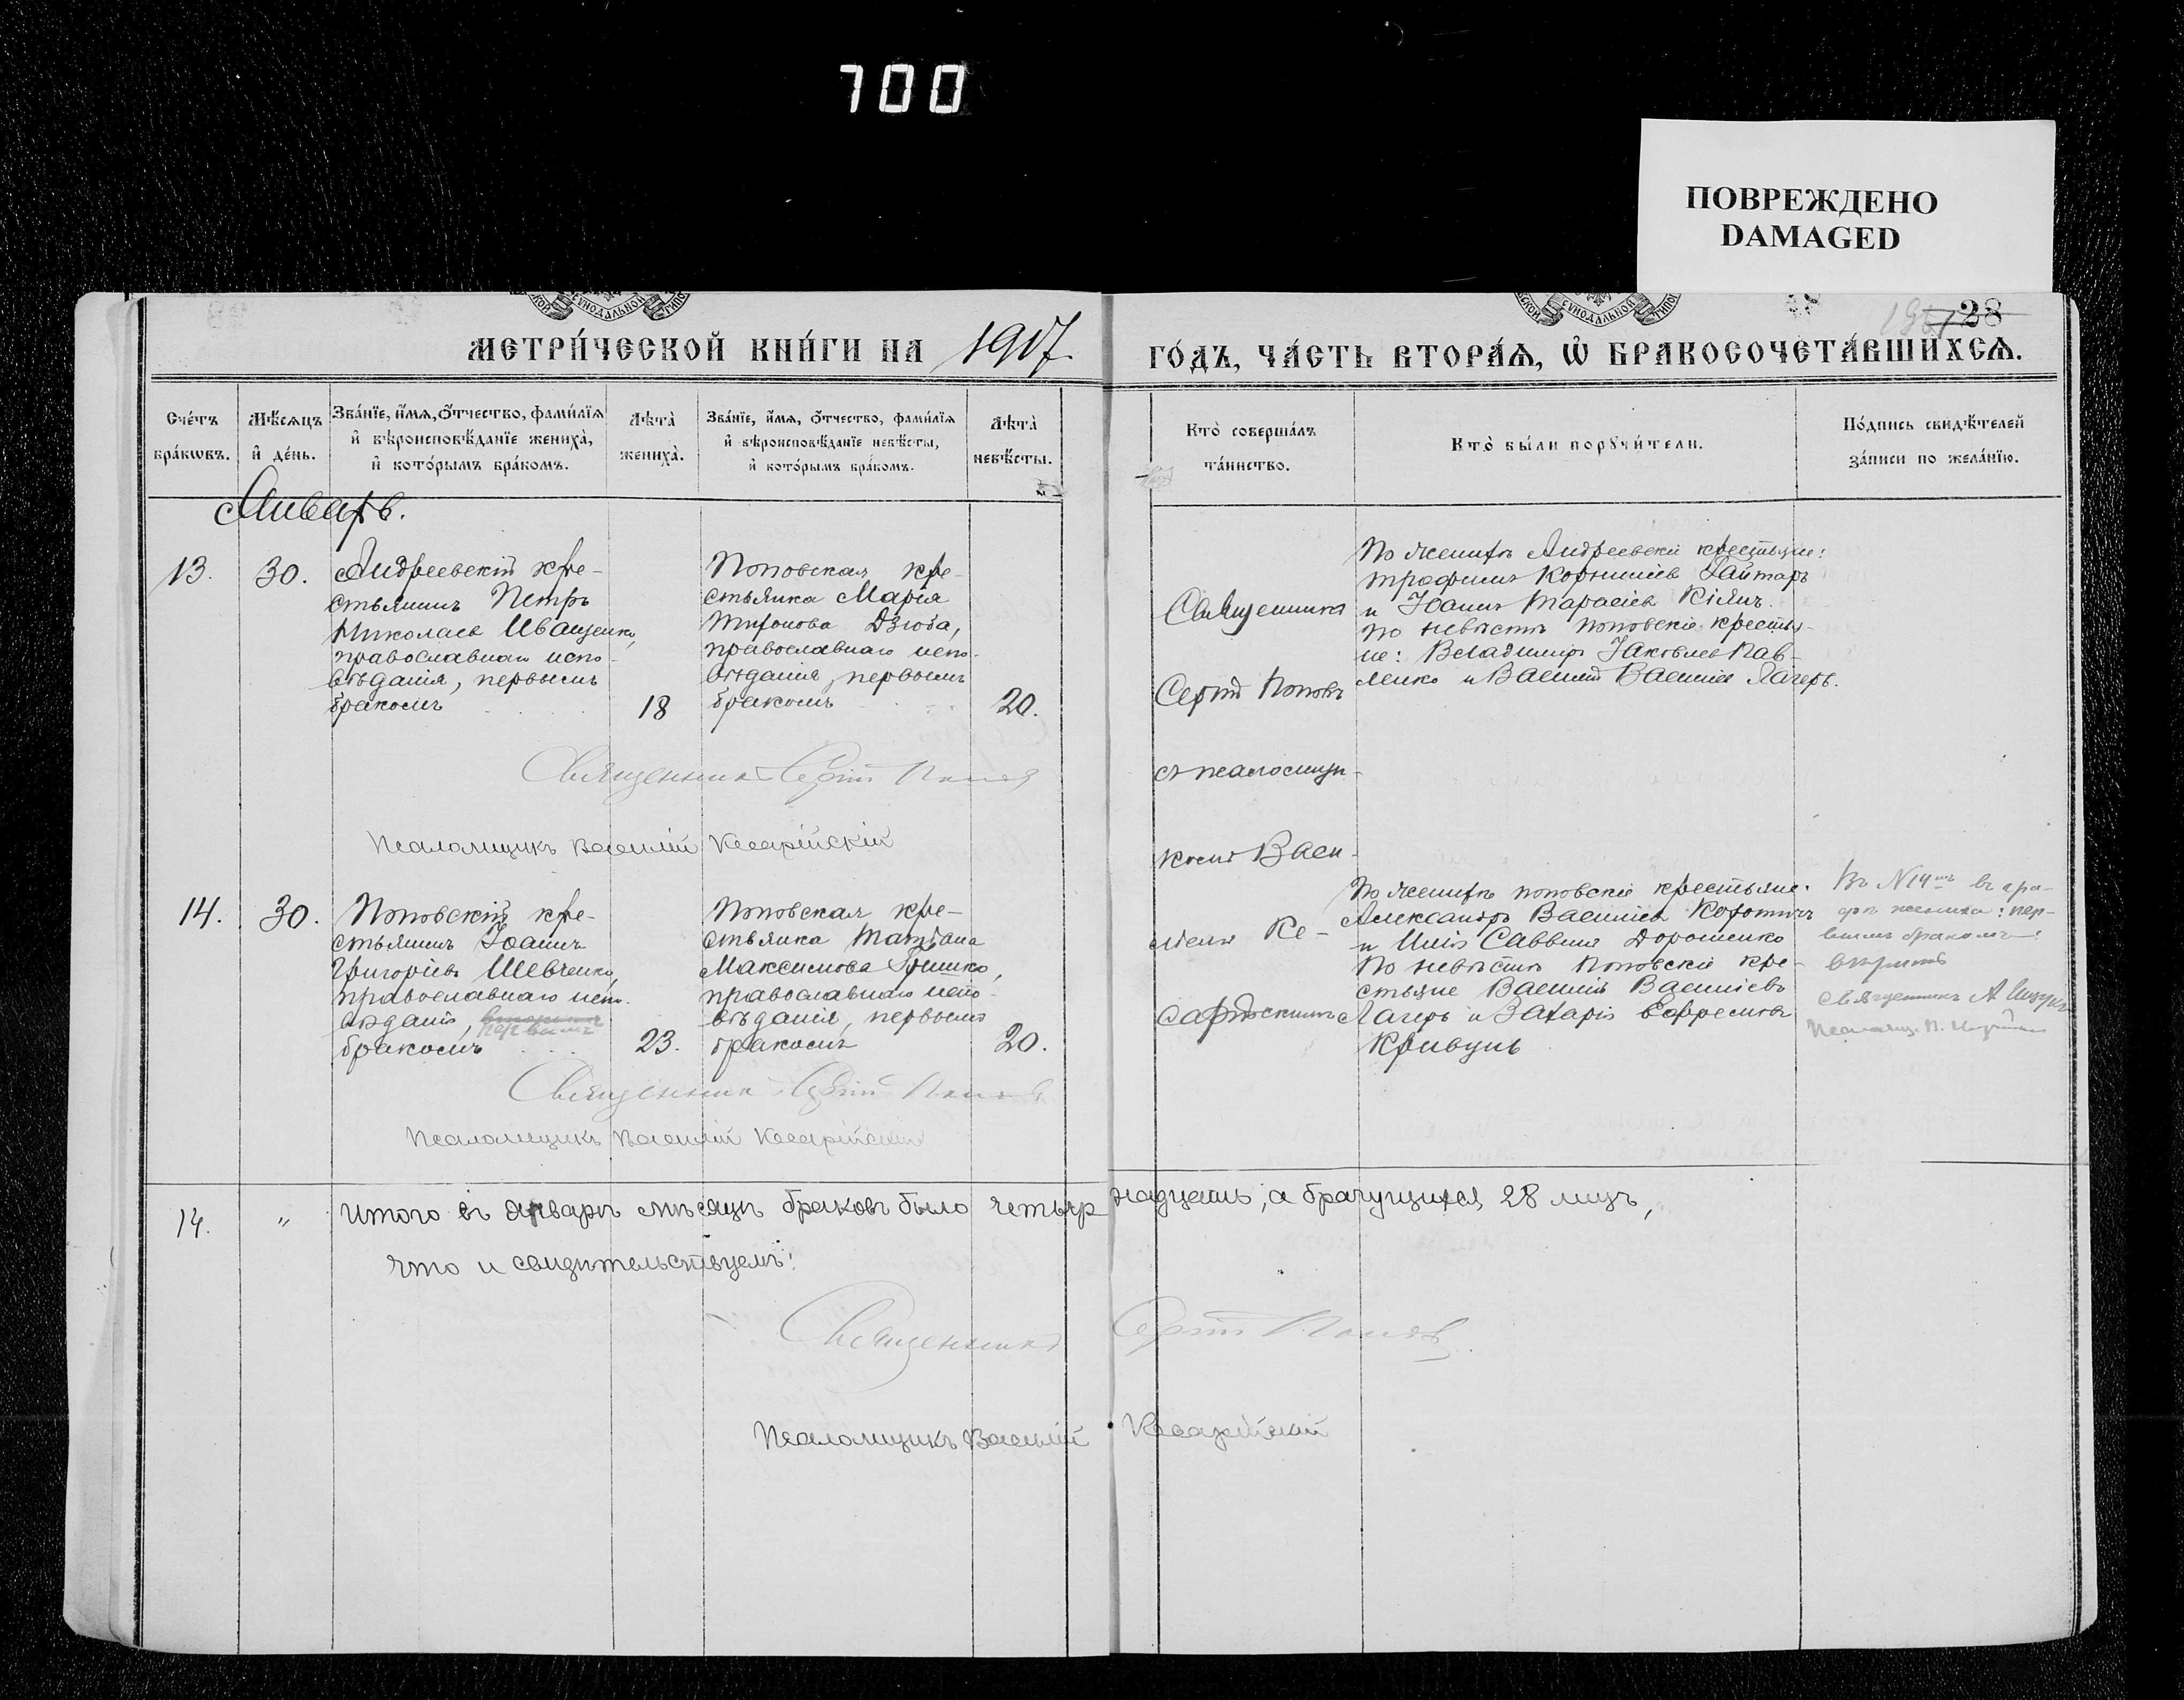 700
ПОВРЕЖДЕНО
DAMAGED
28
МЕТРИ́ЧЕСКОЙ КНИ́ГИ НА 1907.
ГО́ДЪ, ЧА́СТЬ ВТОРА́Ѧ, Ѡ БРАКОСОЧЕТА́ВШИХСѦ.
Сче́тъ бра́кѡвъ.
Мѣ́сѧцъ и де́нь.
Зва́нїе, и́мѧ, ѻ́тчество, фами́лїѧ
и вѣроисповѣ́данїе жениха̀,
и кото́рымъ бра́комъ.
Лѣта̀ жениха̀.
Зва́нїе, и́мѧ, ѻ́тчество, фами́лїѧ
и вѣроисповѣ́данїе невѣ́сты,
и кото́рымъ бра́комъ.
Лѣта̀ невѣ́сты.
Кто̀ соверша́лъ та́инство.
Кто̀ бы́ли порꙋчи́тели.
По́дпись свидѣ́телей
за́писи по жела́нїю.
Январь.
13.
30.
Андреевскій кре-
стьянинъ Петръ
Николаевъ Иващенко,
православнаго испо-
вѣданія, первымъ
бракомъ
18
Поповская кре-
стьянка Марія
Дзюба,
православнаго испо-
вѣданія, первымъ
бракомъ
20.
Священникъ
Сергій Поповъ
съ псаломщи-
комъ Васи-
ліемъ Ке-
сарійскимъ
По женихѣ Андреевскіе крестьяне:
Трофимъ Гайтаръ
и Іоаннъ Тарасіевъ Кіянъ.
По невѣстѣ Поповскіе крестья-
не: Владиміръ Іаковлевъ Пав-
ленко и Василій Васильевъ Лагеръ.
Священникъ Сергій Поповъ
Псаломщикъ Василій Кесарійскій
14.
30.
Поповскій кре-
стьянинъ Іоаннъ
Григоріевъ Шевченко,
православнаго испо-
вѣданія, вторымъ первымъ
бракомъ
23.
Поповская кре-
стьянка Татіана
Максимова Гришко,
православнаго испо-
вѣданія, первымъ
бракомъ
20.
По женихѣ Поповскіе крестьяне:
Александръ Васильевъ
и Саввинъ Дорошенко
По невѣстѣ Поповскіе кре-
стьяне Василій Васильевъ
Лагеръ и Захарій Ефремовъ
Кривунь
Въ №14мъ въ гра-
фѣ жениха: пер-
вымъ бракомъ
Священникъ А
Священникъ Сергій Поповъ
Псаломщикъ Василій Кесарійскій
14. " Итого въ январѣ мѣсяцѣ браковъ было четырнадцать, а брачущихся 28 лицъ,
что и свидѣтельствуемъ:
Священникъ Сергій Поповъ
Псаломщикъ Василій Кесарійскій